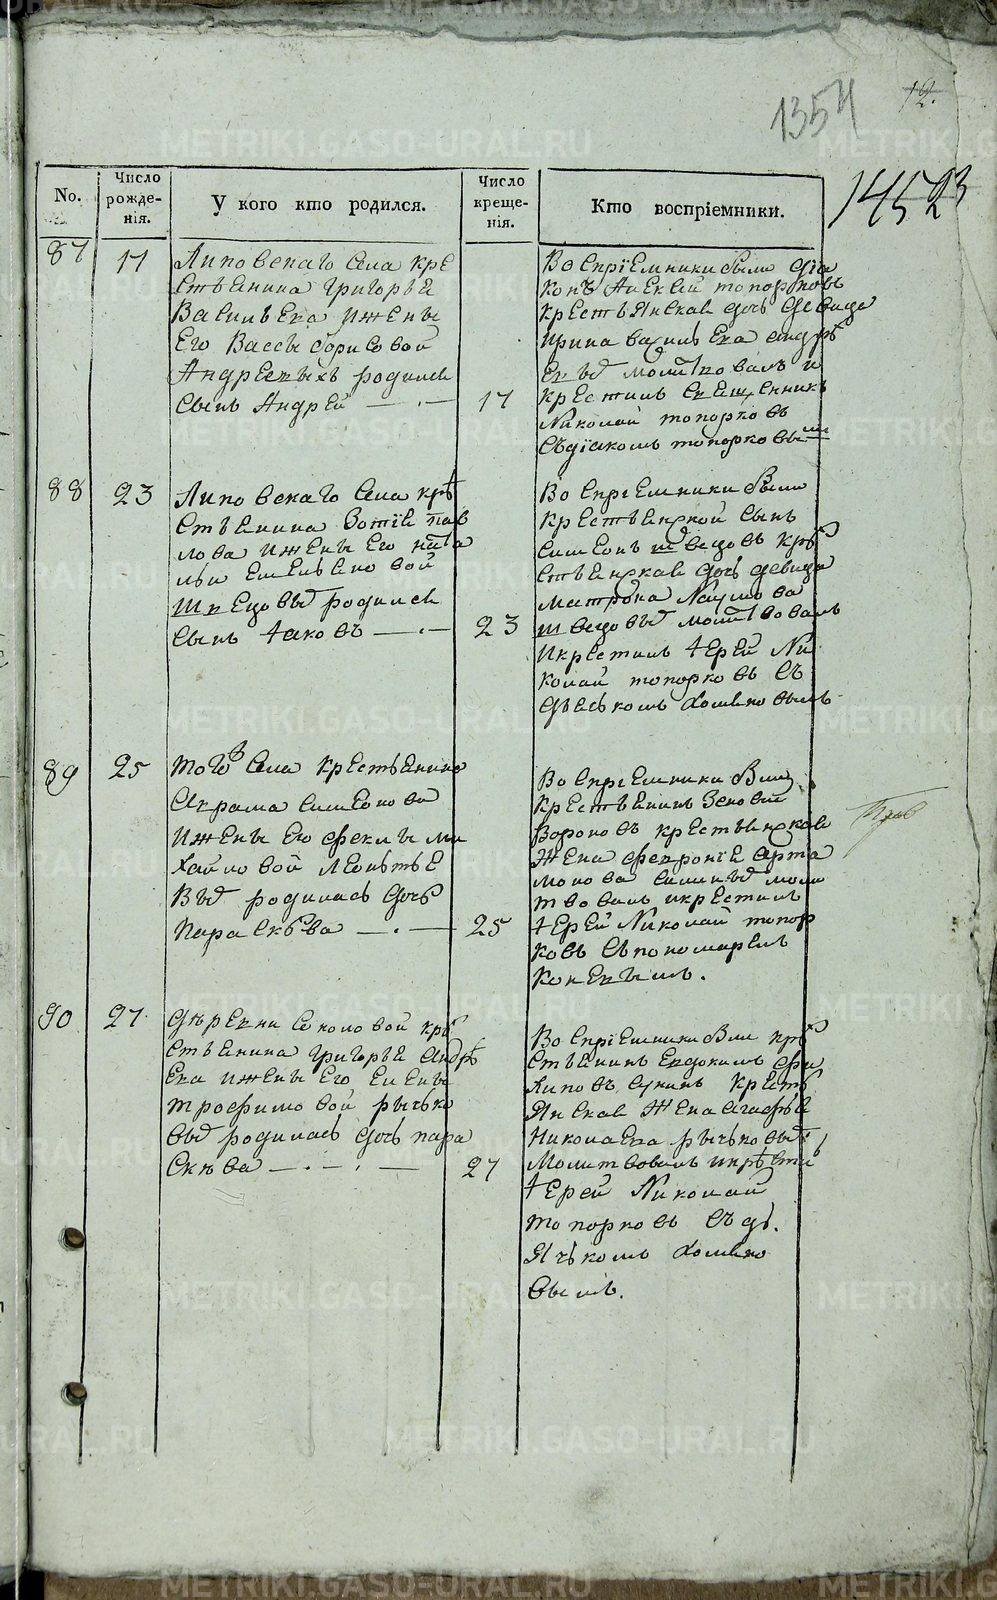 1354
12.
14523
No.
Число рожде- нія.
У кого кто родился.
Число креще- нія.
Кто воспріемники.
87
17
Липовскаго села кре
стьянина григорья
Васильева ижены
Его Вассы борисовой
Андреевыхъ родился
Сынъ Андрей
17
Воспрїемники были дїа
конъ Алексей топорковъ
крестьянская дочь девица
ирина васильева андрѣ
евыд молитвовалъ и
крестилъ священникъ
Николай топорковъ
Съдїакомъ топорковым
88
23
Липовскаго села крѣ
стьянина Зотїя пав
лова ижены Его ната
льи Емельяновой
Шведовыд родился
Сынъ Iаковъ
23
Воспрїемники были
крестьянской сынъ
симеонъ шведовъ крѣ
стьянская дочь девица
матрона Наумова
шведовыд молитвовалъ
Икрестилъ Iерей Ни
колай топорковъ Съ
дьячькомъ хомяковымъ
89
25
тогож села крестьянина
Аврама симеонова
ижены Его феклы ми
хайловой Леонтье
Выд родилась дочь
параскѣва
25
Воспрїемники были
крестьянинъ Зеновей
Вороновъ крестьянская
Жена февронїя арта
монова силиныд моли
твовалъ икрестилъ
Iерей Николай топор
ковъ Съпономаремъ
коневымъ.
90
27
дѣревни соколовой крѣ
стьянина григорья андрѣ
Ева ижены Его Елены
трофимовой рычько
выд родилась дочь пара
скѣва
27
Воспрїемники были крѣ
стьянинъ Евдокимъ фи
липовъ крест
янская Жена агафья
николаева рычьковыд
Молитвовалъ икрѣсти
Iерей Николай
топорковъ Съ дь.
ячькомъ хомяко
вымъ.